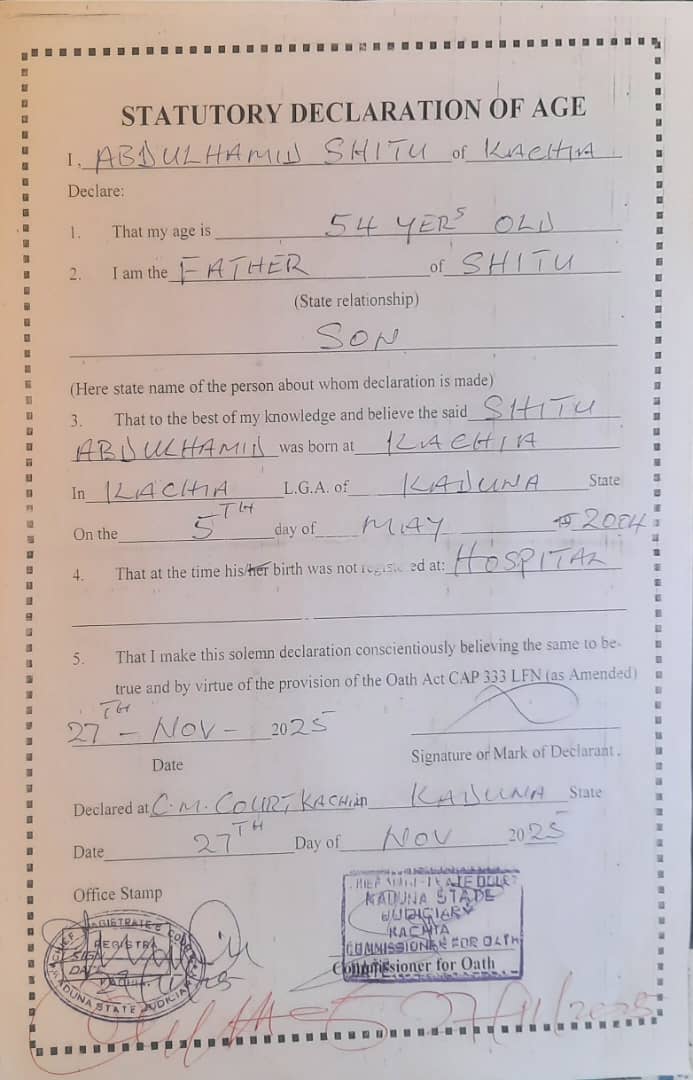 STATUTORY DECLARATION OF AGE
I, ABDULHAMID SHITU of KACHIA
Declare:
1. That my age is 54 YERS OLD
2. I am the FATHER of SHITU
(State relationship)
SON
(Here state name of the person about whom declaration is made)
3. That to the best of my knowledge and believe the said SHITU
ABDULHAMID was born at KACHIA
In KACHIA L.G.A. of KADUNA State
On the 5TH day of MAY 2004
4. That at the time his/her birth was not registered at: HOSPITAL
5. That I make this solemn declaration conscientiously believing the same to be-
true and by virtue of the provision of the Oath Act CAP 333 LFN (as Amended)
27TH - NOV - 2025
Date
Signature or Mark of Declarant.
Declared at C.M. COURT KACHIA in KADUNA State
Date 27TH Day of NOV 2025
Office Stamp
CHIEF MAGISTRATE COURT
KADUNA STATE
JUDICIARY
KACHIA
COMMISSIONER FOR OATH
Commissioner for Oath
CHIEF MAGISTRATES COURT
REGISTRAR
SIGN
DATE
KADUNA STATE JUDICIARY
27/11/2025